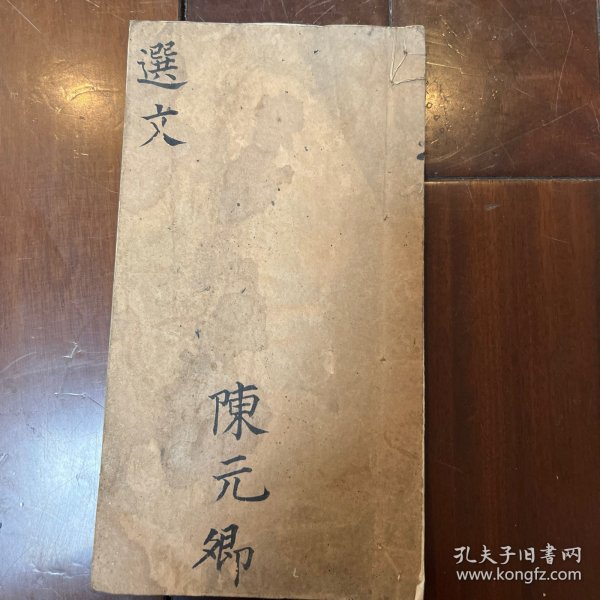 選文
陳元卿
孔夫子旧书网
www.kongfz.com